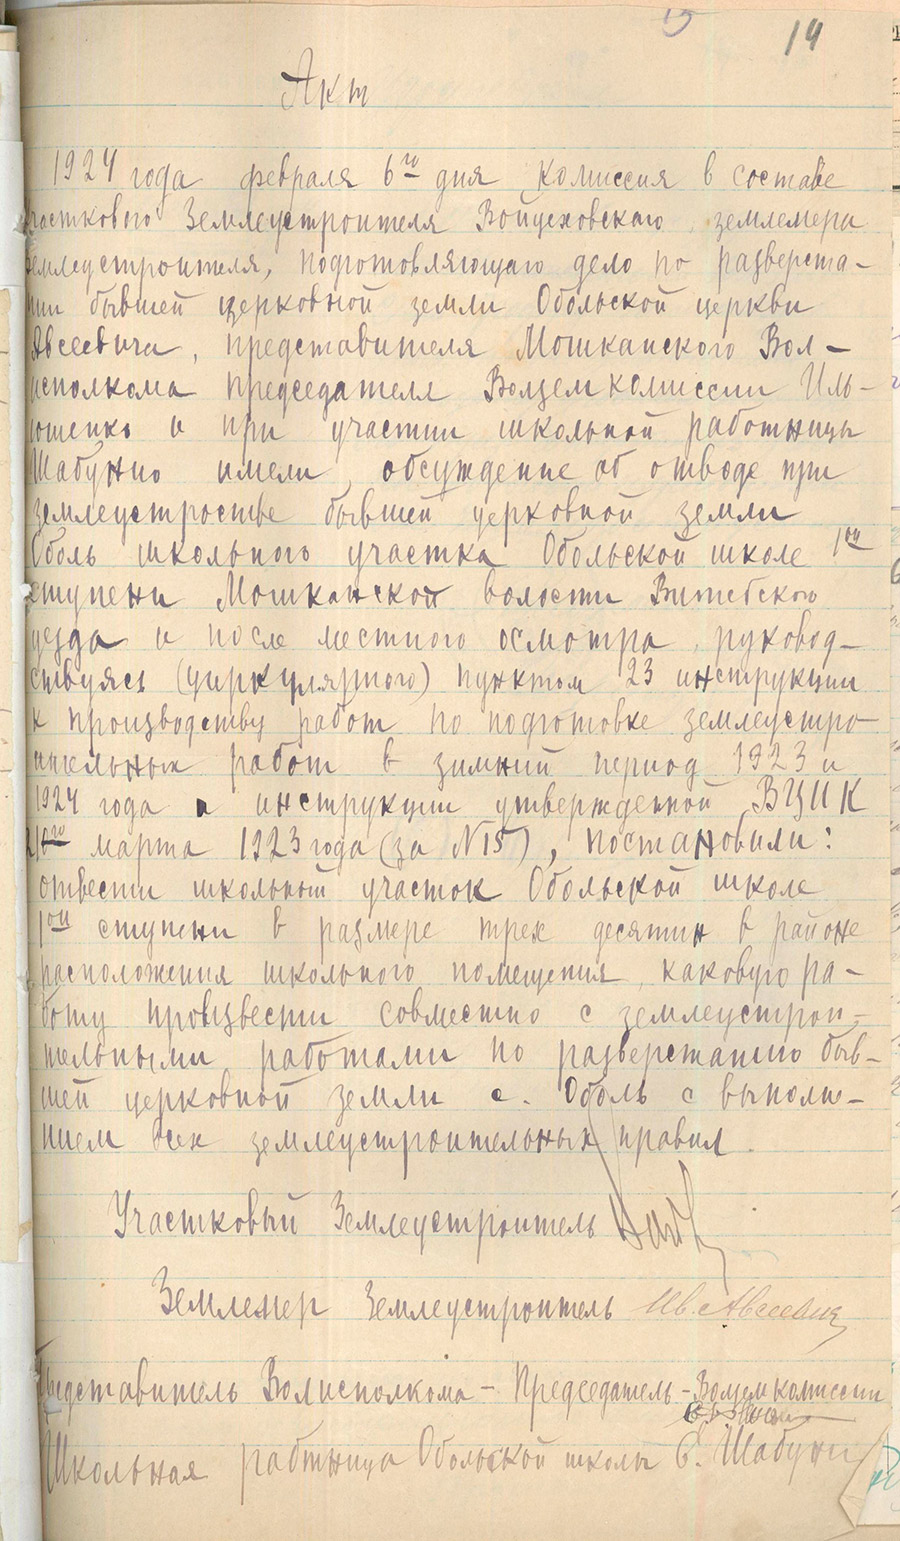 14
Акт
1924 года февраля 6го дня Комиссия в составе
участкового Землеустроителя Войцеховского, землемера
землеустроителя, подготовляющаго дело по разверста-
нии бывшей церковной земли Обольской церкви
Авсеевича, представителя Мошканского Вол-
исполкома председателя Волземкомиссии Иль-
ющенко и при участии школьной работницы
Шабунио имели обсуждение об отводе при
землеустростве бывшей церковной земли
Оболь школьного участка Обольской школе 1ой
ступени Мошканской волости Витебского
уезда и после местного осмотра, руковод-
ствуясь (циркулярного) пунктом 23 инструкции
к производству работ по подготовке землеустро-
ительных работ в зимний период 1923 и
1924 года и инструкции утвержденной ВЦИК
21го марта 1923 года (за N15), постановили:
отвести школьный участок Обольской школе
1ой ступени в размере трех десятин в районе
расположения школьного помещения, каковую ра-
боту произвести совместно с землеустрои-
тельными работами по разверстанию быв-
шей церковной земли с. Оболь с выполне-
нием всех землеустроительных правил.
Участковый Землеустроитель
Землемер Землеустроитель Ив. Авсеевич
Представитель Волисполкома - Председатель - Волземкомиссии
Школьная работница Обольской школы Е. Шабуни